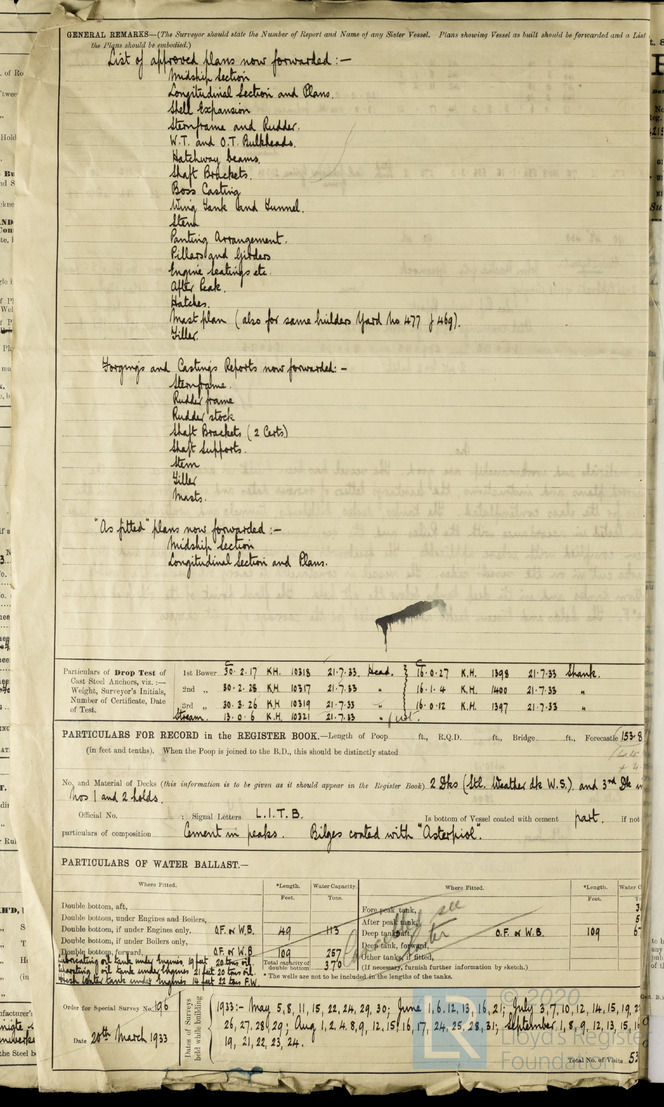 GENERAL REMARKS—(The Surveyor should state the Number of Report and Name of any Sister Vessel. Plans showing Vessel as built should be forwarded and a List
the Plans should be embodied.)
List of approved plans now forwarded :—
Midship Section
Longitudinal Section and Plans.
Shell Expansion
Sternframe and Rudder.
W.T. and O.T. Bulkheads.
Hatchway Beams.
Shaft Brackets.
Boss Casting
Wing Tank and Tunnel.
Stem
Panting Arrangement.
Pillars and Girders
Engine Seatings etc.
After Peak.
Hatches.
Mast plan (also for same builders Yard No 477 & 469).
Tiller.
Forgings and Castings Reports now forwarded :—
Sternframe.
Rudder frame
Rudder stock
Shaft Brackets (2 Certs)
Shaft Supports.
Stem
Tiller
Masts.
"As fitted" plans now forwarded :—
Midship Section
Longitudinal Section and Plans.
Particulars of Drop Test of
Cast Steel Anchors, viz. :—
Weight, Surveyor's Initials,
Number of Certificate, Date
of Test.
1st Bower 30.2.17 K.H. 10318 21.7.33 Head. 16.0.27 K.H. 1398 21.7.33 Shank.
2nd „ 30.2.28 K.H. 10317 21.7.33 „ 16.1.4 K.H. 1400 21.7.33 „
3rd „ 30.3.26 K.H. 10319 21.7.33 „ 16.0.12 K.H. 1397 21.7.33 „
Stream. 13.0.6 K.H. 10321 21.7.33 „
PARTICULARS FOR RECORD in the REGISTER BOOK.—Length of Poop ft., R.Q.D. ft., Bridge ft., Forecastle 153.8
(in feet and tenths). When the Poop is joined to the B.D., this should be distinctly stated
No. and Material of Decks (this information is to be given as it should appear in the Register Book) 2 Dks (Stl. Weather dk W.S.) and 3rd Dk in
Nos 1 and 2 holds.
Official No. ; Signal Letters L.I.T.B. Is bottom of Vessel coated with cement part. if not
particulars of composition Cement in peaks. Bilges coated with
PARTICULARS OF WATER BALLAST.—
Where Fitted. *Length. Water Capacity. Where Fitted. *Length. Water C
Feet. Tons. Feet.
Double bottom, aft, Fore peak tank,
Double bottom, under Engines and Boilers, After peak tank,
Double bottom, if under Engines only, O.F. or W.B. 49 113 Deep tank, aft, O.F. or W.B. 109
Double bottom, if under Boilers only, Deep tank, forward,
Double bottom, forward, O.F. or W.B. 109 257 Other tanks, if fitted,
Total capacity of double bottom 370 (If necessary, furnish further information by sketch.)
* The wells are not to be included in the lengths of the tanks.
Lubricating oil tank under Engines 19 feet 20 tons oil
oil tank under Engines 21 feet 20 tons oil
Fresh Water tank under Engines 14 feet 22 tons F.W.
Order for Special Survey No. 196
Date 20th March 1933
Dates of Surveys held while building
1933:- May 5, 8, 11, 15, 22, 24, 29, 30; June 1, 6, 12, 13, 16, 21; July 3, 7, 10, 12, 14, 15, 19, 2
26, 27, 28, 29; Aug 1, 2, 4, 8, 9, 12, 15, 16, 17, 24, 25, 28, 31; September 1, 8, 9, 12, 13, 15, 1
19, 21, 22, 23, 24.
Total No. of Visits 53
© 2020
LR
Lloyd's Registe
Foundation